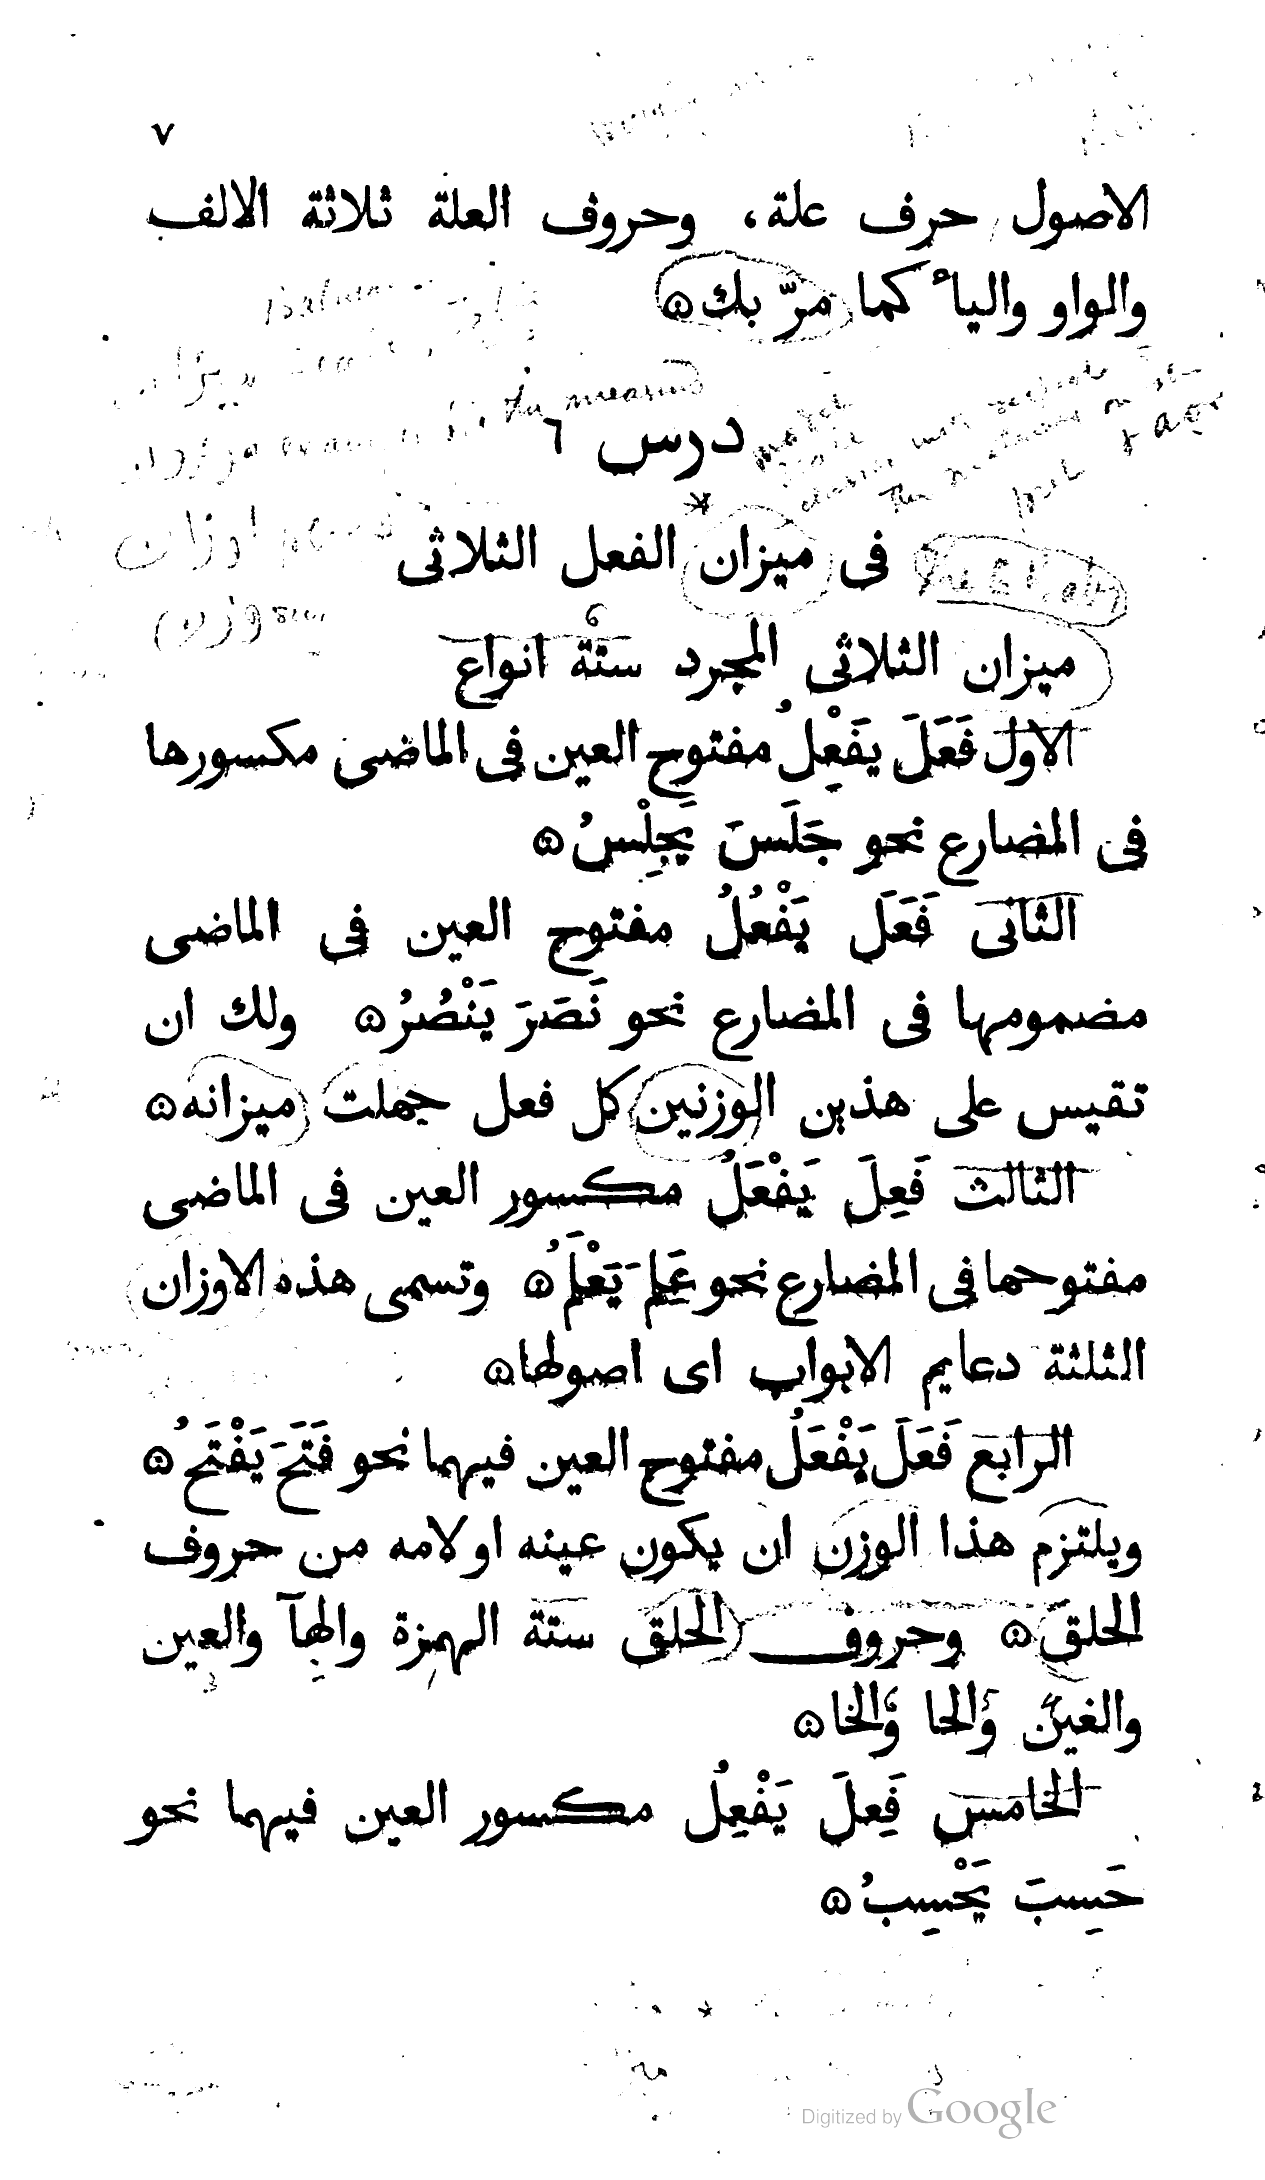 ٧
الاصول حرف علة، وحروف العلة ثلاثة الالف
والواو والياء كما مرّ بك ۞
the measure
درس ٦
فى ميزان الفعل الثلاثى
6
ميزان الثلاثى المجرد ستة انواع
الاول فَعَلَ يَفْعِلُ مفتوح العين فى الماضى مكسورها
فى المضارع نحو جَلَسَ يَجِلْسُ ۞
الثانى فَعَل يَفْعُلُ مفتوح العين فى الماضى
مضمومها فى المضارع نحو نَصَرَ يَنْصُرُ ۞ ولك ان
تقيس على هذين الوزنين كل فعل جهلت ميزانه ۞
الثالث فَعِلَ يَفْعَلُ مكسور العين فى الماضى
مفتوحها فى المضارع نحو عَلِمَ يَعْلَمُ ۞ وتسمى هذه الاوزان
الثلثة دعايم الابواب اى اصولها ۞
الرابع فَعَلَ يَفْعَلُ مفتوح العين فيهما نحو فَتَحَ يَفْتَحُ ۞
ويلتزم هذا الوزن ان يكون عينه او لامه من حروف
الحلق ۞ وحروف الحلق ستة الهمزة والهآ والعين
والغين والحا والخا ۞
الخامس فَعِلَ يَفْعِلُ مكسور العين فيهما نحو
حَسِبَ يَحْسِبُ ۞
Digitized by Google